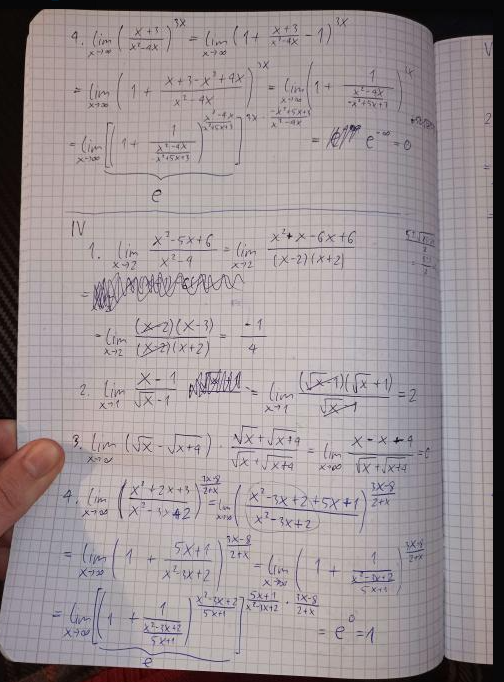 4. lim x→∞ ((x+3)/(x²-4x))^(3x) = lim x→∞ (1 + (x+3)/(x²-4x) - 1)^(3x)
= lim x→∞ (1 + (x+3-x²+4x)/(x²-4x))^(3x) = lim x→∞ (1 + 1/((x²-4x)/(-x²+5x+3)))^(3x)
= lim x→∞ [(1 + 1/((x²-4x)/(-x²+5x+3)))^((x²-4x)/(-x²+5x+3))]^(3x · (-x²+5x+3)/(x²-4x)) = e^(-∞) = 0
e
IV
1. lim x→2 (x²-5x+6)/(x²-4) = lim x→2 (x²+x-6x+6)/((x-2)(x+2)
=
= lim x→2 ((x-2)(x-3))/((x-2)(x+2)) = -1/4
2. lim x→1 (x-1)/(√x-1) = lim x→1 ((√x-1)(√x+1))/(√x-1) = 2
3. lim x→∞ (√x - √(x+4)) · (√x+√(x+4))/(√x+√(x+4)) = lim x→∞ (x-x+4)/(√x+√(x+4)) = 0
4. lim x→∞ ((x²+2x+3)/(x²-3x+2))^((3x-8)/(2+x)) = lim x→∞ ((x²-3x+2+5x+1)/(x²-3x+2))^((3x-8)/(2+x))
= lim x→∞ (1 + (5x+1)/(x²-3x+2))^((3x-8)/(2+x)) = lim x→∞ (1 + 1/((x²-3x+2)/(5x+1)))^((3x-8)/(2+x))
= lim x→∞ [(1 + 1/((x²-3x+2)/(5x+1)))^((x²-3x+2)/(5x+1))]^((5x+1)/(x²-3x+2) · (3x-8)/(2+x)) = e^0 = 1
e